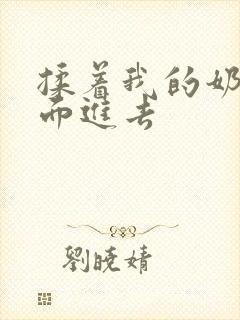 揉着我的奶
而進去
劉曉婧